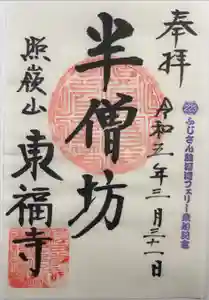 奉拝
ふじさん駿河湾フェリー
令和五年三月三十一日
半僧坊
照嶺山
東福寺